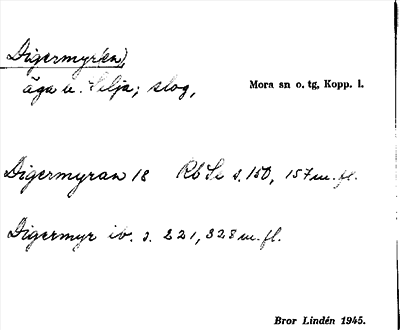 Digermyr(en)
äga u. Selja; slog,
Mora sn o. tg, Kopp. l.
Digermyran 18 Rb Se s. 150, 157 m. fl.
Digermyr ib. s. 221, 328 m. fl.
Bror Lindén 1945.